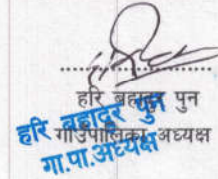 हरि बहादुर पुन
गाउँपालिका अध्यक्ष
हरि बहादुर पुन
गा.पा.अध्यक्ष